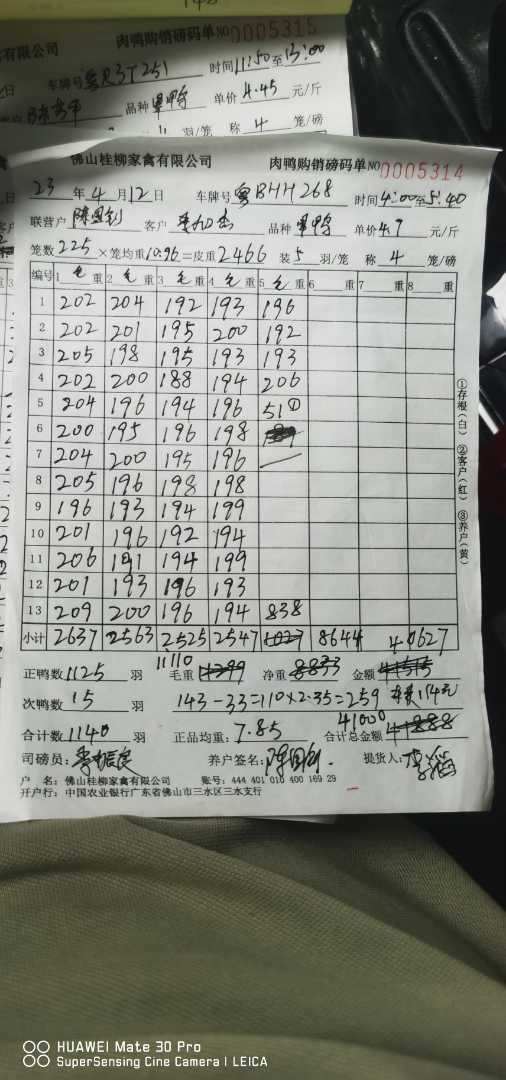 肉鸭购销磅码单NO 0005315
有限公司
车牌号粤R3T251 时间11:50至13:00
品种 单鸭 单价4.45元/斤
羽/笼 称 4 笼/磅
佛山桂柳家禽有限公司 肉鸭购销磅码单NO 0005314
日 23年4月12日 车牌号粤BHH268 时间4:00至5:40
联营户 客户 品种 单鸭 单价4.7元/斤
笼数225×笼均重10.96=皮重2466 装5羽/笼 称4笼/磅
编号 1毛重 2毛重 3毛重 4毛重 5毛重 6重 7重 8重
1 202 204 192 193 196
2 202 201 195 200 192
3 205 198 195 193 193
4 202 200 188 194 206
5 204 196 194 196 51①
6 200 195 196 198
7 204 200 195 196
8 205 196 198 198
9 196 193 194 199
10 201 196 192 194
11 206 191 194 199
12 201 193 196 193
13 209 200 196 194 838
小计 2637 2563 2525 2547 1027 8644 40627
11110
正鸭数1125羽 毛重 净重 金额
次鸭数15羽 143-33=110×2.35=259
41000
合计数1140羽 正品均重:7.85 合计总金额
司磅员: 养户签名: 提货人:
户 名:佛山桂柳家禽有限公司 账号:444 401 010 400 169 29
开户行:中国农业银行广东省佛山市三水区三水支行
①存根(白) ②客户(红) ③养户(黄)
HUAWEI Mate 30 Pro
SuperSensing Cine Camera | LEICA